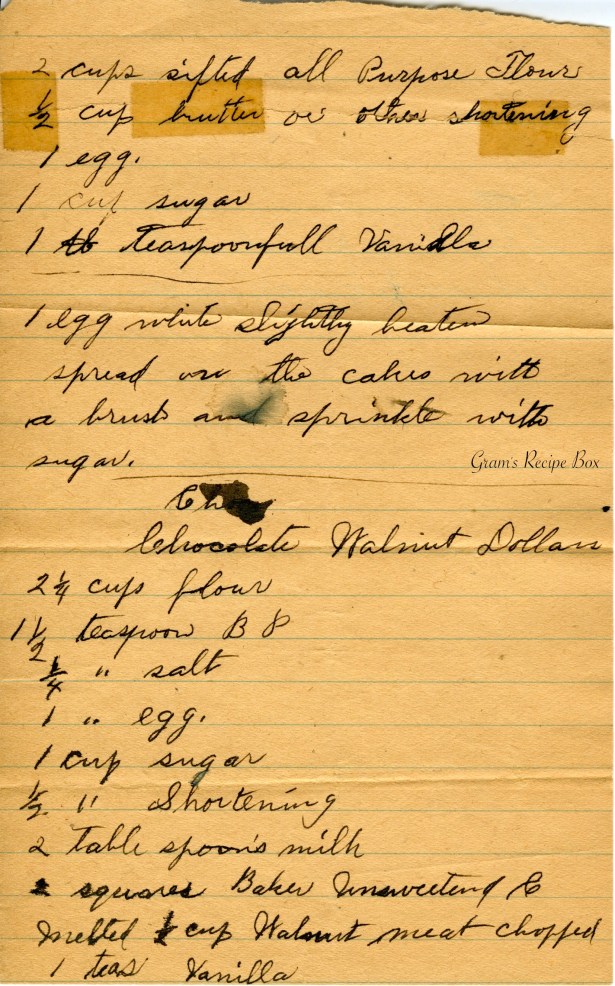 2 cups sifted all Purpose Flour
½ cup butter or other shortening
1 egg.
1 cup sugar
1 teaspoonfull Vanilla
1 egg white slightly beaten
spread on the cakes with
a brush and sprinkle with
sugar.
Gram's Recipe Box
Cho
Chocolate Walnut Dollars
2¼ cups flour
1½ teaspoon B P
¼ " salt
1 " egg.
1 cup sugar
½ " Shortening
2 table spoon's milk
2 squares Baker Unsweetend C
melted cup Walnut meat chopped
1 teas Vanilla